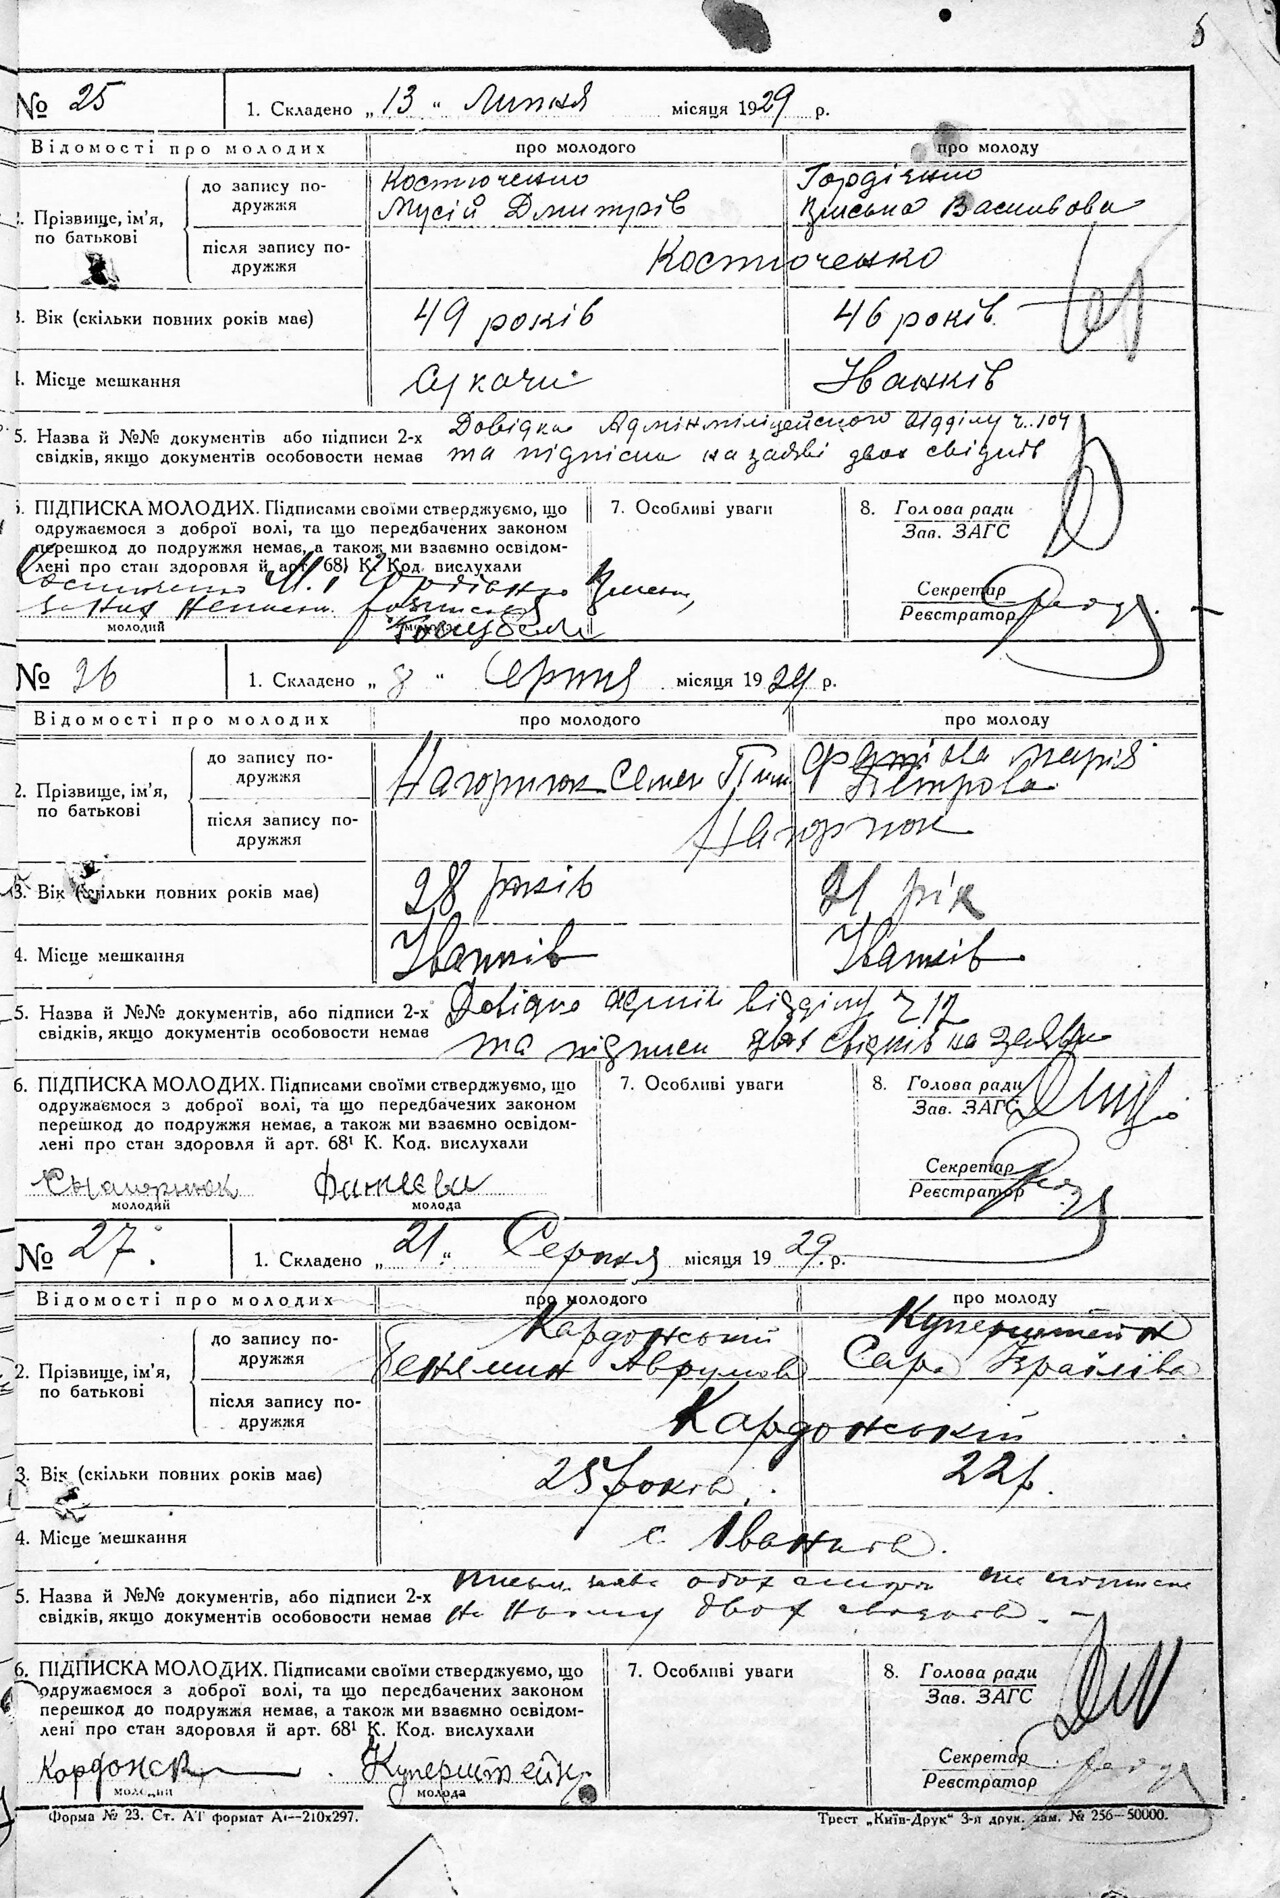 5
№ 25 1. Складено „ 13 " Липня місяця 1929 р.
Відомості про молодих про молодого про молоду
2. Прізвище, ім'я, по батькові
до запису по-
дружжя
Костюченко
Мусій Дмитрів
Гордієнко
Василівова
після запису по-
дружжя
Костюченко
3. Вік (скільки повних років має) 49 років 46 років
4. Місце мешкання Сукачи Іванків
5. Назва й №№ документів або підписи 2-х Довідка Адмінміліцейского відділу ч. 104
свідків, якщо документів особовости немає та підписи на заяві двох свідків
6. ПІДПИСКА МОЛОДИХ. Підписами своїми стверджуємо, що
одружаємося з доброї волі, та що передбачених законом
перешкод до подружжя немає, а також ми взаємно освідом-
лені про стан здоровля й арт. 68¹ К. Код. вислухали
Костюченко М. і Гордієнко
за них неписьм. розписався
молодий
7. Особливі уваги
8. Голова ради
Зав. ЗАГС
Секретар
Реєстратор
№ 26 1. Складено „ 8 " Серпня місяця 1929 р.
Відомості про молодих про молодого про молоду
2. Прізвище, ім'я,
по батькові
до запису по-
дружжя
Нагорнюк Семен
Марія
Петрова
після запису по-
дружжя
Нагорнюк
3. Вік (скільки повних років має) 28 років 21 рік
4. Місце мешкання Іванків Іванків
5. Назва й №№ документів, або підписи 2-х Довідка відділу ч 12
свідків, якщо документів особовости немає та підписи двох свідків на заяві
6. ПІДПИСКА МОЛОДИХ. Підписами своїми стверджуємо, що
одружаємося з доброї волі, та що передбачених законом
перешкод до подружжя немає, а також ми взаємно освідом-
лені про стан здоровля й арт. 68¹ К. Код. вислухали
С Нагорнюк
молодий молода
7. Особливі уваги
8. Голова ради
Зав. ЗАГС
Секретар
Реєстратор
№ 27. 1. Складено „ 21 " Серпня місяця 1929. р.
Відомості про молодих про молодого про молоду
2. Прізвище, ім'я,
по батькові
до запису по-
дружжя
Кардонський
Бенямин Аврумов
Куперштейн
Сара Ізраілівна
після запису по-
дружжя
Кардонський
3. Вік (скільки повних років має) 25 років. 22 р.
4. Місце мешкання с. Іванків.
5. Назва й №№ документів, або підписи 2-х письм. заява обох сторон та підписи
свідків, якщо документів особовости немає на ньому двох свідків. –
6. ПІДПИСКА МОЛОДИХ. Підписами своїми стверджуємо, що
одружаємося з доброї волі, та що передбачених законом
перешкод до подружжя немає, а також ми взаємно освідом-
лені про стан здоровля й арт. 68¹ К. Код. вислухали
Кардонск Куперштейн
молодий молода
7. Особливі уваги
8. Голова ради
Зав. ЗАГС
Секретар
Реєстратор
Форма № 23. Ст. АГ формат А4—210x297. Трест „Київ-Друк" 3-я друк. зам. № 256—50000.